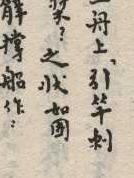 舟上，引竿刺
？之狀如圖
解撐船作：